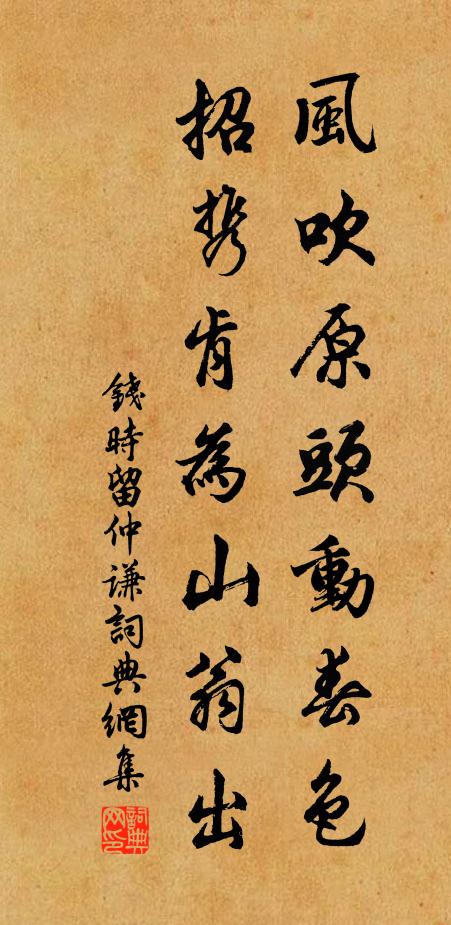 風吹原頭動春色
招携肯為山翁出
錢時留仲謙詞典網集
詞典
网印